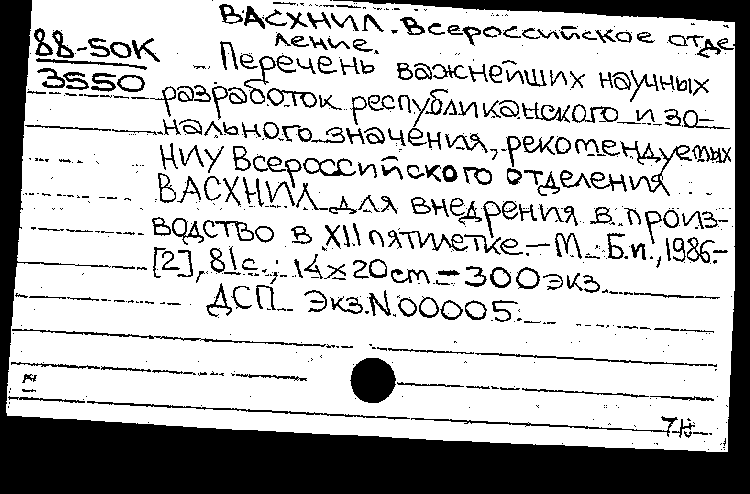 ВАСХНИЛ. Всероссийское отде-
88-50К
ление.
3550
Перечень важнейших научных
разработок республиканского и зо-
нального значения, рекомендуемых
НИУ Всероссийского отделения
ВАСХНИЛ для внедрения в произ-
водство в XII пятилетке. – М.: Б.и., 1986. –
[2], 81с.; 14×20см. – 300экз.
ДСП Экз.N00005.